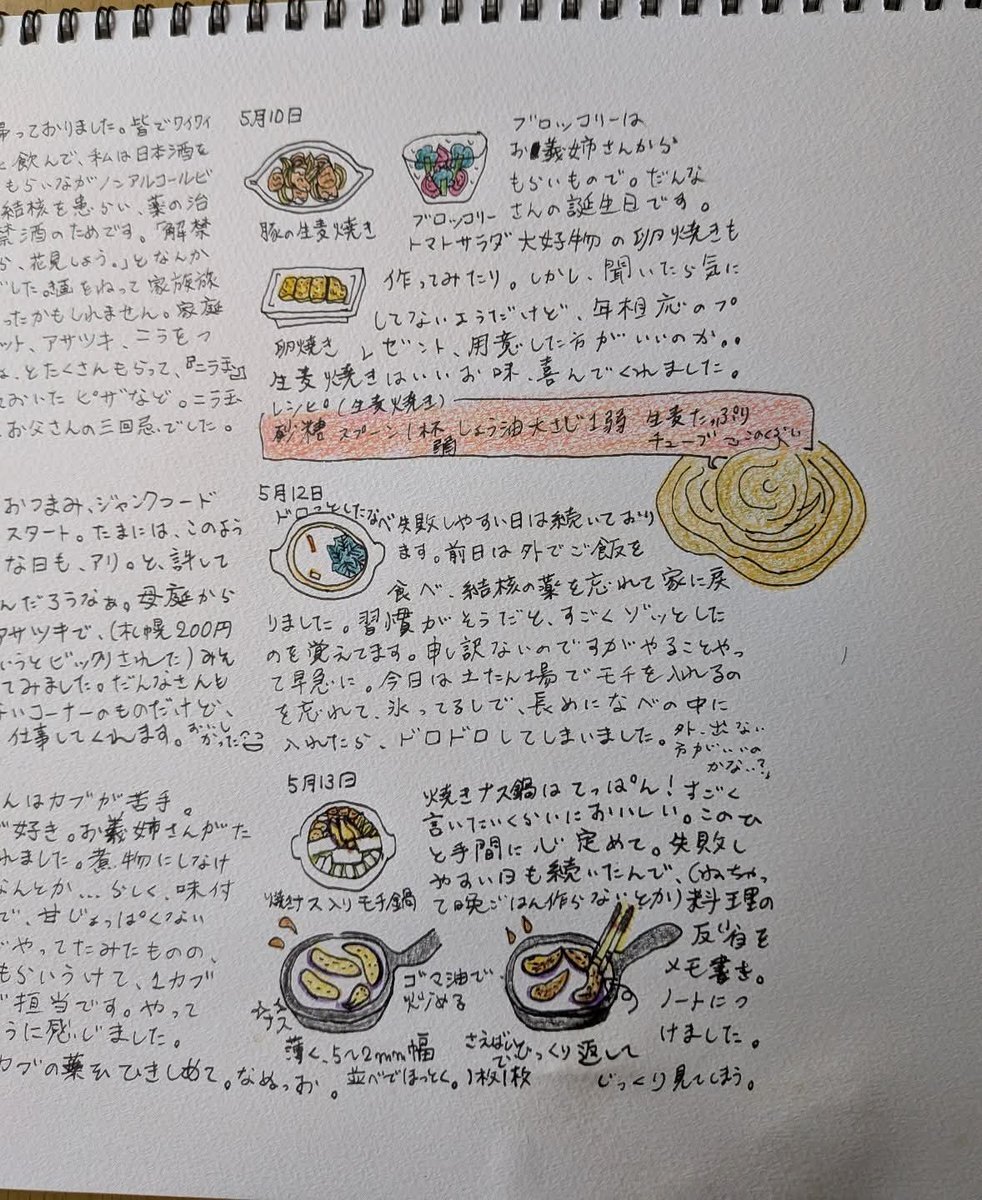 帰っておりました。皆でワイワイ
と飲んで、私は日本酒を
もらいながノンアルコールビ
結核を患らい、薬の治
禁酒のためです。「解禁
ら、花見しよう。」となんか
でした。麺をねって家族旅
ったかもしれません。家庭
ット、アサツキ、ニラをつ
な、とたくさんもらって、『ニラ玉』
ておいた ピザなど。ニラ玉
お父さんの三回忌でした。
おつまみ、ジャンクフード
スタート。たまには、このよう
な日も、アリ。と、許して
んだろうなぁ。母庭から
アサツキで、(札幌200円
いうとビックリされた)みそ
てみました。だんなさんと
ないコーナーのものだけど、
仕事してくれます。おいしかった
んはカブが苦手。
が好き。お義姉さんがた
れました。煮物にしなけ
なんとか…らしく、味付
で、甘じょっぱくない
でやってたみたものの、
もらいうけて、1カブ
で担当です。やって
うに感じました。
カブの薬をひきしめて。なぬっお。
5月10日
豚の生麦焼き
ブロッコリー
トマトサラダ
ブロッコリーは
お義姉さんから
もらいもので。だんな
さんの誕生日です。
大好物の卵焼きも
卵焼き
作ってみたり。しかし、聞いたら気に
してないようだけど、年相応のプ
レゼント、用意した方がいいのか。。
生麦焼きはいいお味、喜んでくれました。
レシピ(生麦焼き)
砂糖 スプーン1杯弱 しょう油大さじ1弱 生麦たっぷり
チューブ〜このくらい
5月12日
ドロっとしたなべ
失敗しやすい日は続いており
ます。前日は外でご飯を
食べ、結核の薬を忘れて家に戻
りました。習慣がそうだと、すごくゾッとした
のを覚えてます。申し訳ないのですがやることやっ
て早急に。今日は土たん場でモチを入れるの
を忘れて、氷ってるしで、長めになべの中に
入れたら、ドロドロしてしまいました。
外、出ない
方がいいの
かな…?
5月13日
焼きナス入りモチ鍋
焼きナス鍋はてっぱん!すごく
言いたいくらいにおいしい。このひ
と手間に心定めて。失敗し
やすい日も続いたんで、(ねちゃっ
て晩ごはん作らないとか)料理の
反省を
メモ書き。
ノートにつ
けました。
ナス
ゴマ油で
炒める
薄く、5〜2mm幅
並べてほっとく。
さえばしで、ひっくり返して
1枚1枚
じっくり見てしまう。